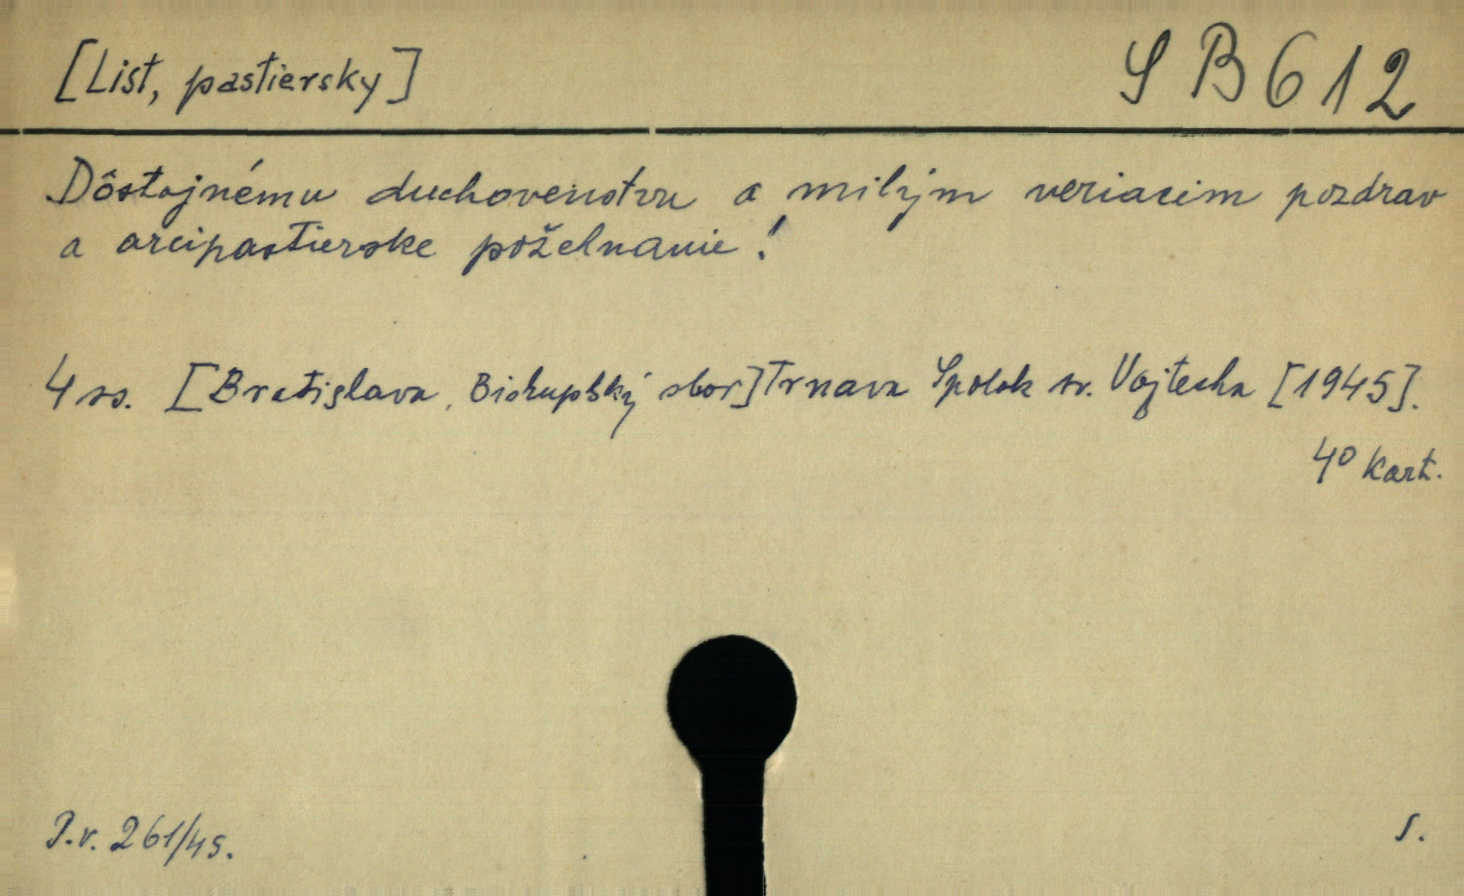 [List, pastiersky]
S B 612
Dôstojnému duchovenstvu a milým veriacim pozdrav
a arcipastierske požehnanie!
4 ss. [Bratislava, Biskupský sbor] Trnava Spolok sv. Vojtecha [1945].
4° kart.
P.v. 261/45.
s.